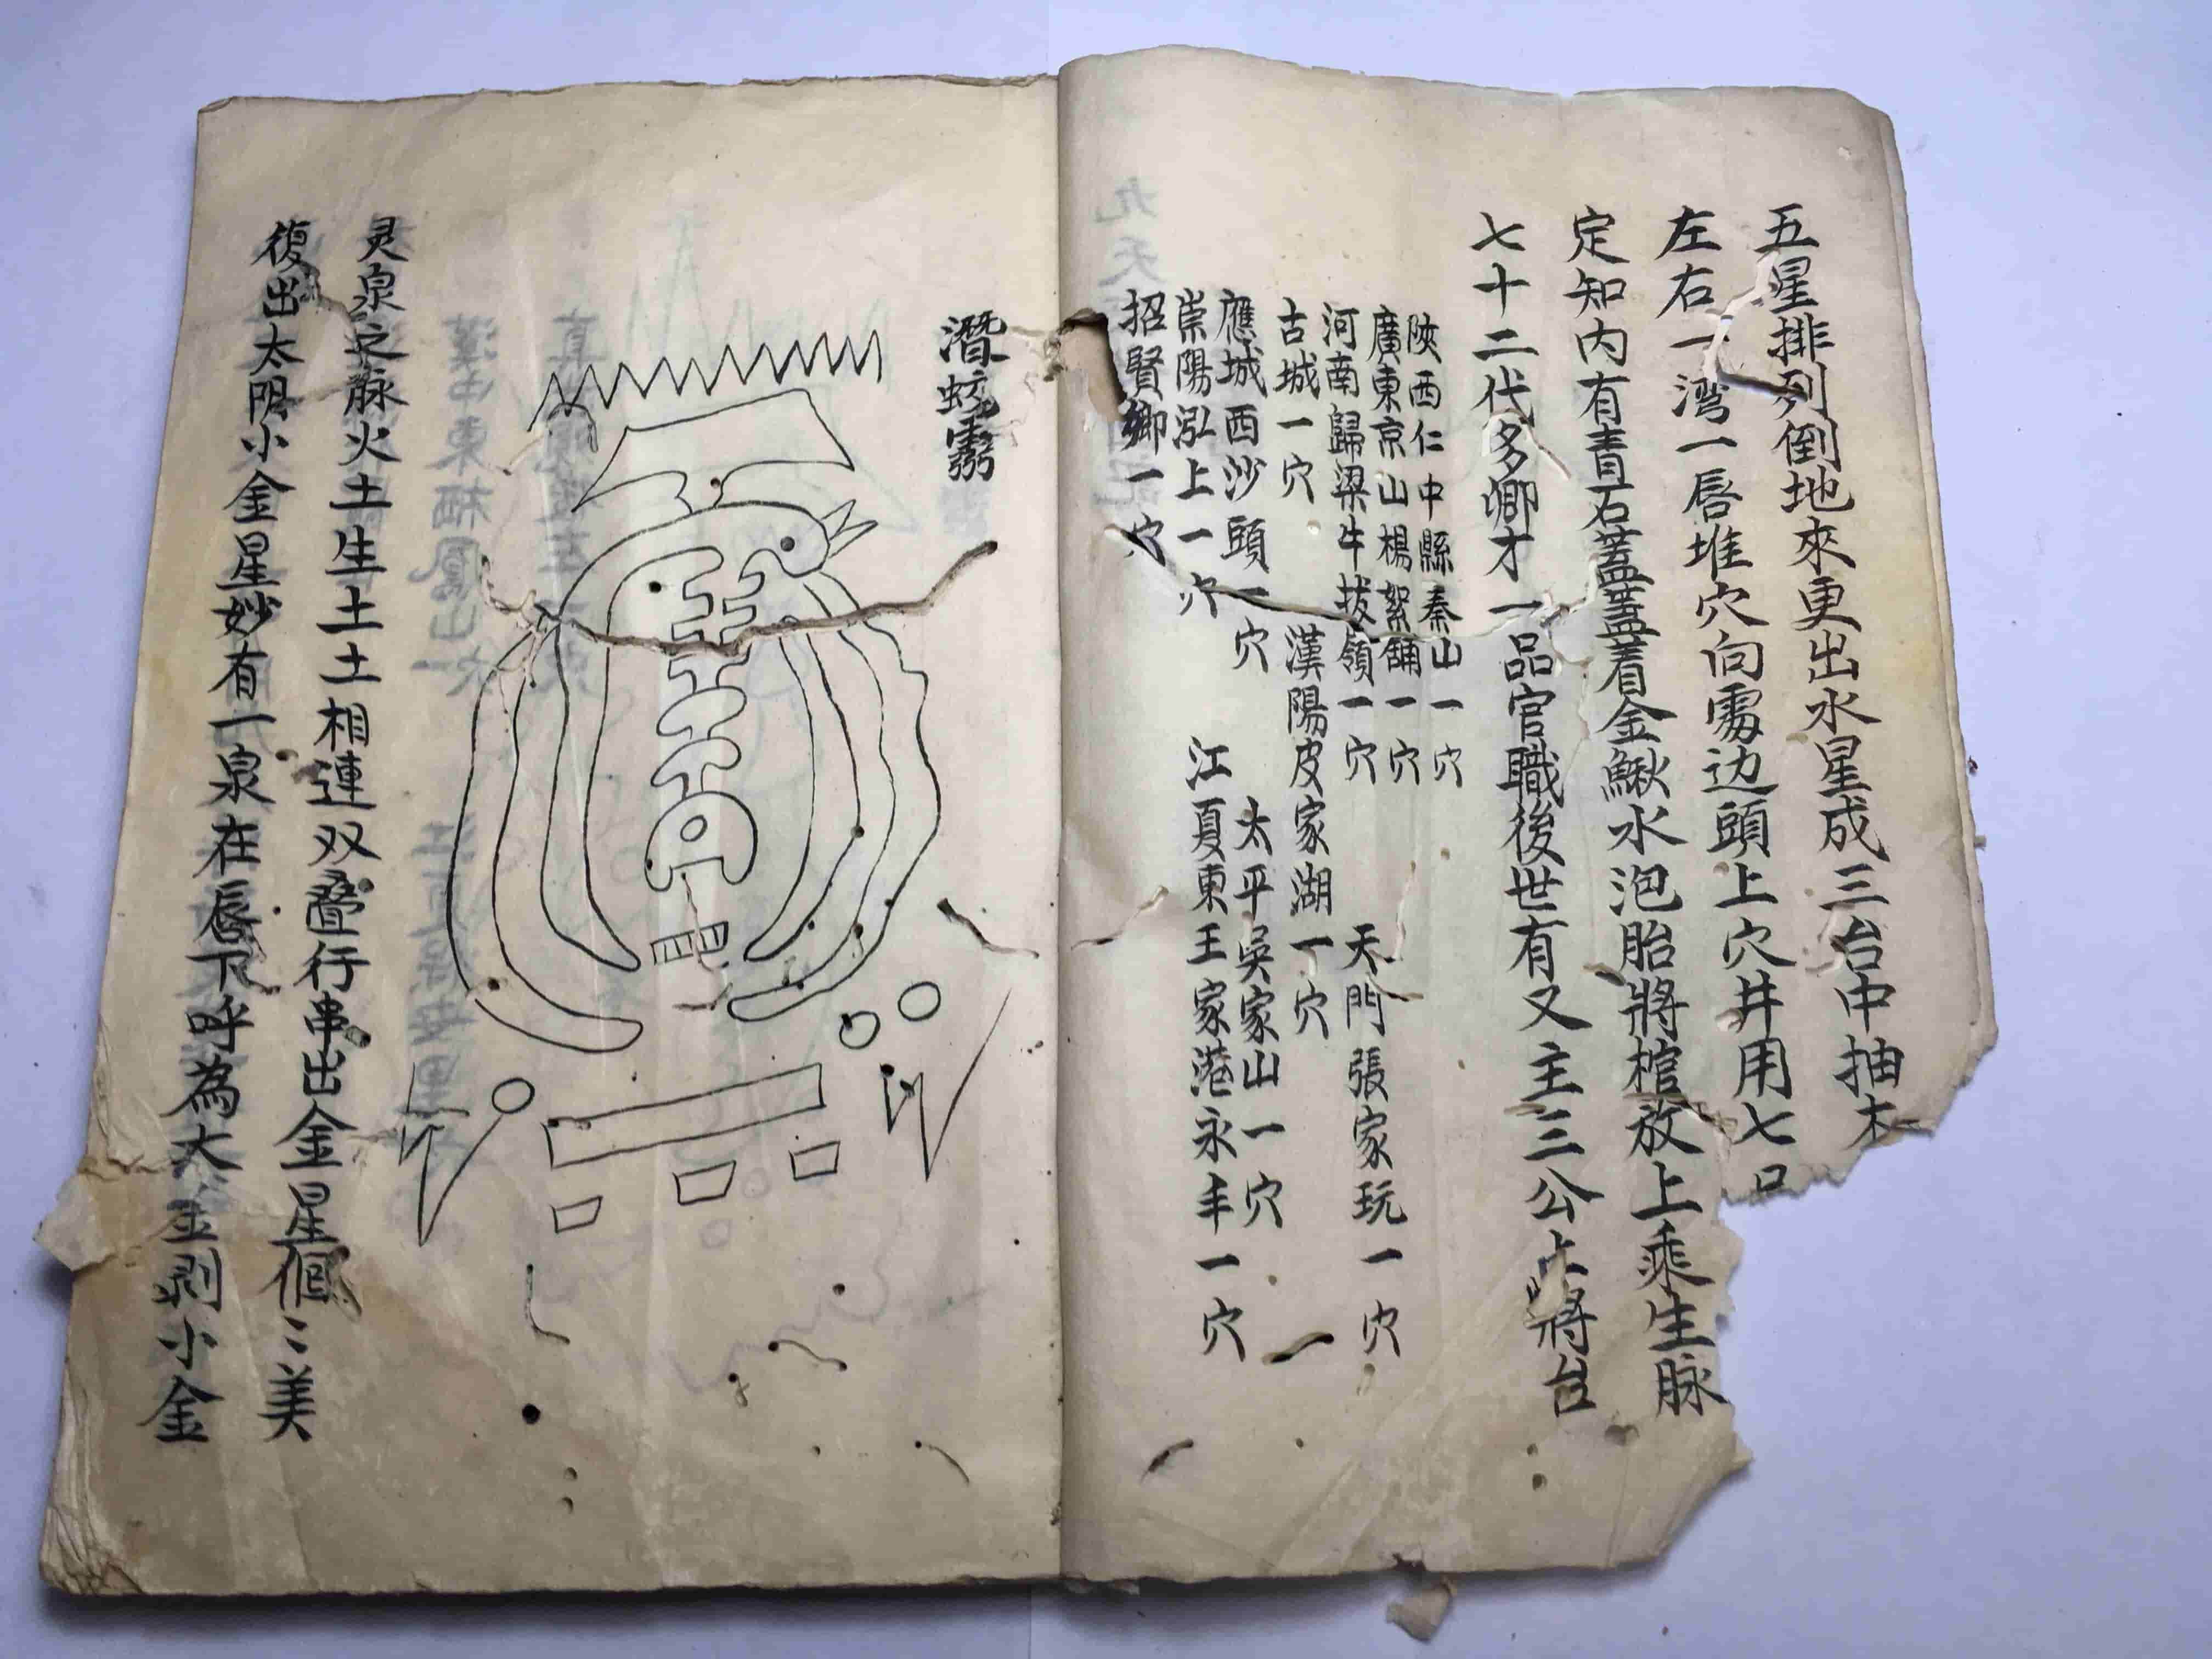 五星排列倒地來更出水星成三台中抽木
左右一湾一唇堆穴向處边頭上穴井用七口
定知内有青石蓋蓋着金鰍水泡胎將棺放上乘生脉
七十二代多卿才一品官職後世有又主三公上將台
陝西仁中縣秦山一穴
廣東京山楊絮舖一穴
河南歸梁牛拔嶺一穴
天門張家玩一穴
古城一穴
漢陽皮家湖一穴
應城西沙頭一穴
太平吳家山一穴
崇陽泓上一穴
江夏東王家港永丰一穴
招賢鄉一穴
潛蛟
灵泉之脉火土生土土相連双叠行串出金星個〻美
復出太阴小金星妙有一泉在唇下呼為大金剥小金